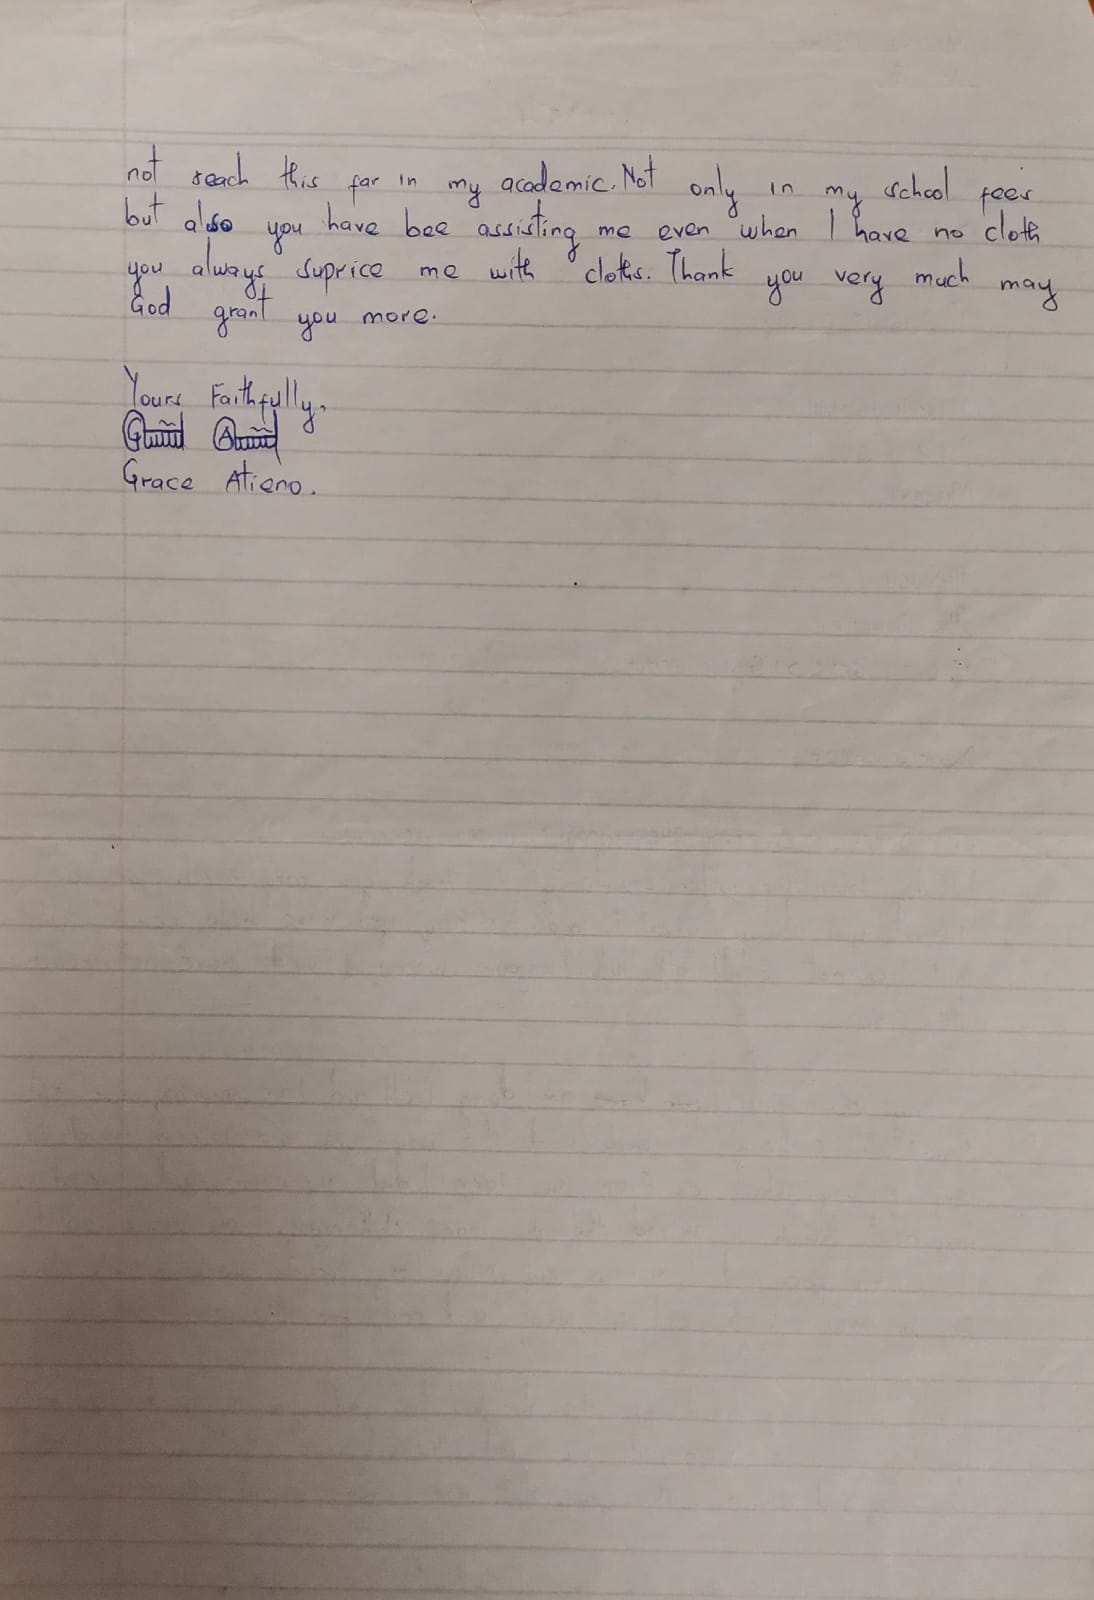 not reach this far in my academic. Not only in my school fees
but also you have bee assisting me even when I have no cloth
you always suprice me with cloths. Thank you very much may
God grant you more.
Yours Faithfully,
Grace Atieno.